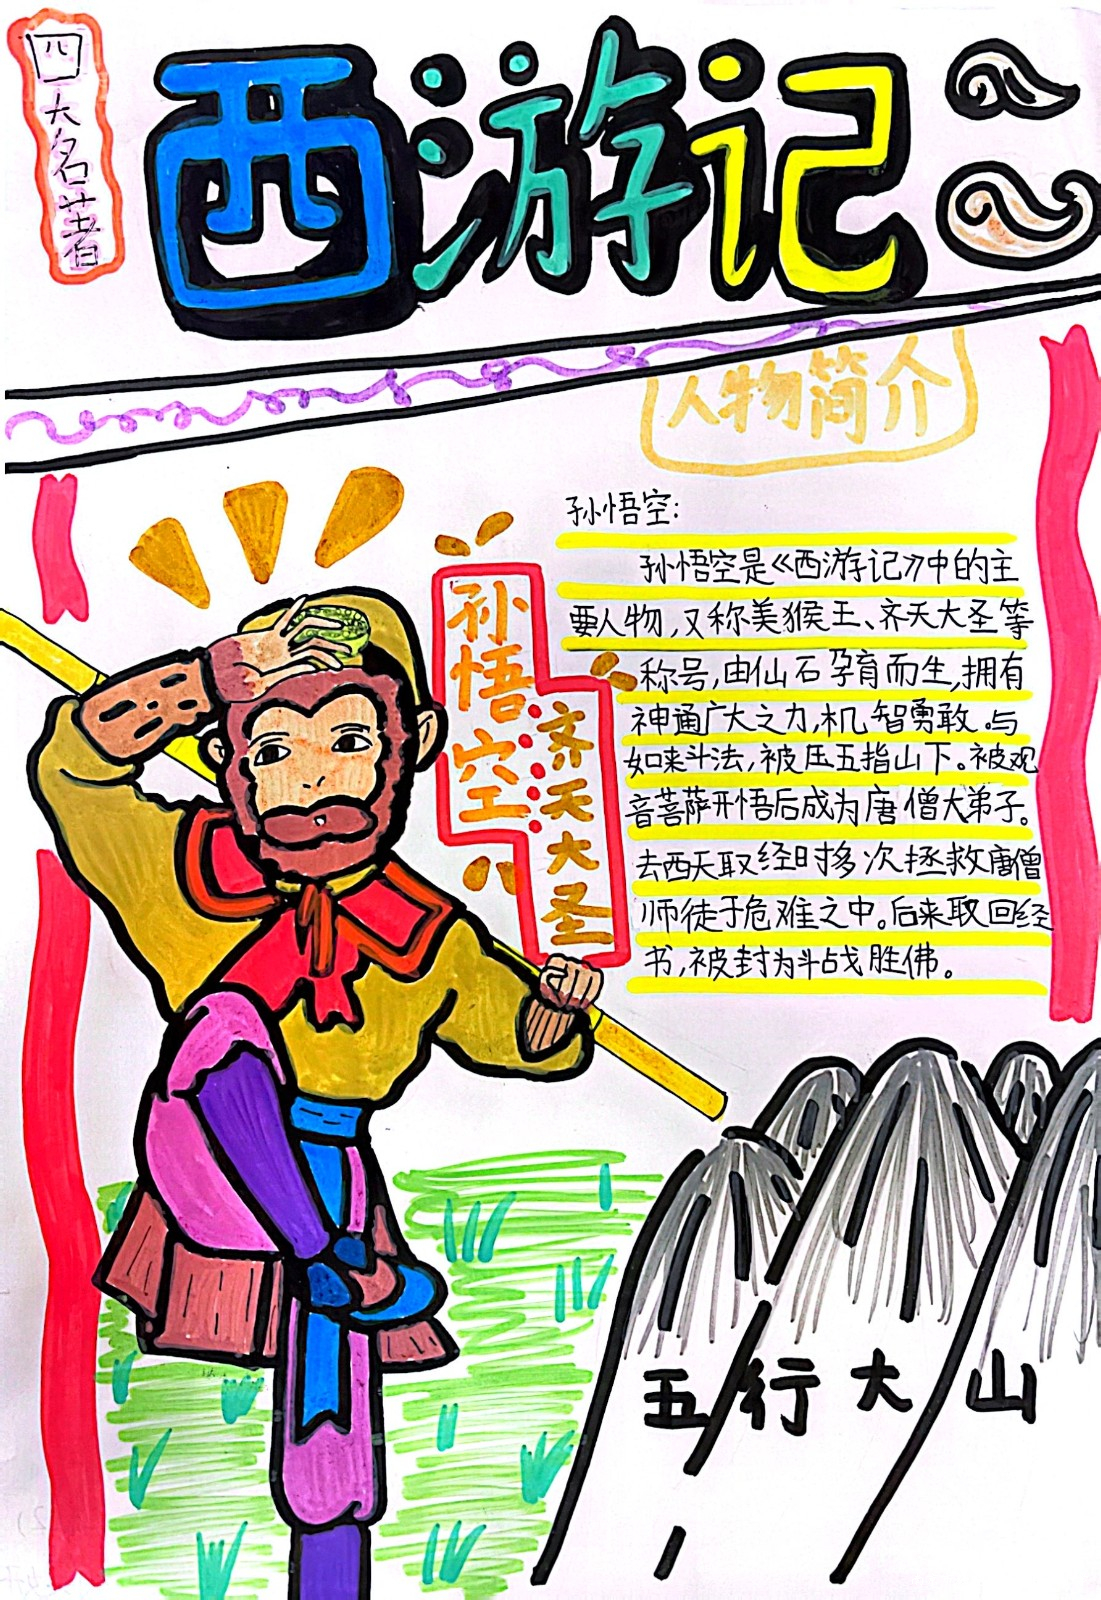 四大名著
西游记
人物简介
孙悟空:
孙悟空是《西游记》中的主
要人物,又称美猴王、齐天大圣等
称号,由仙石孕育而生,拥有
神通广大之力,机智勇敢。与
如来斗法,被压五指山下。被观
音菩萨开悟后成为唐僧大弟子。
去西天取经时多次拯救唐僧
师徒于危难之中。后来取回经
书,被封为斗战胜佛。
孙悟空
齐天大圣
五行大山